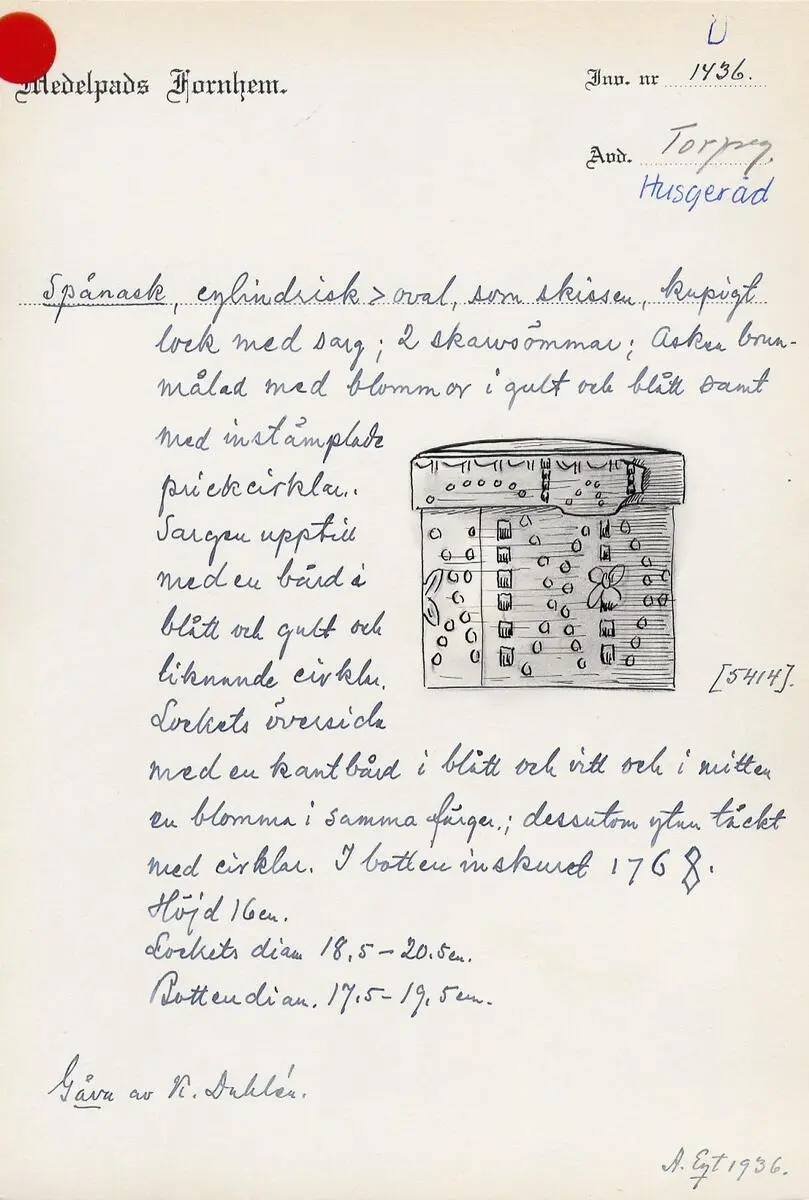 U
Medelpads Fornhem.
Inv. nr 1436.
Avd. Torpeg.
Husgeråd
Spånask, cylindrisk > oval, som skissen, kupigt
lock med sarg; 2 skarvsömmar; Asken brun-
målad med blommor i gult och blått samt
med instämplade
prickcirklar.
Sargen upptill
med en bård i
blått och gult och
liknande cirklar.
[5414].
Lockets översida
med en kantbård i blått och vitt och i mitten
en blomma i samma färger.; dessutom ytan täckt
med cirklar. I botten inskuret 1768.
Höjd 16 cm.
Lockets diam 18,5-20.5 cm.
Bottendiam. 17.5-19,5 cm.
Gåva av K.
A. 1936.